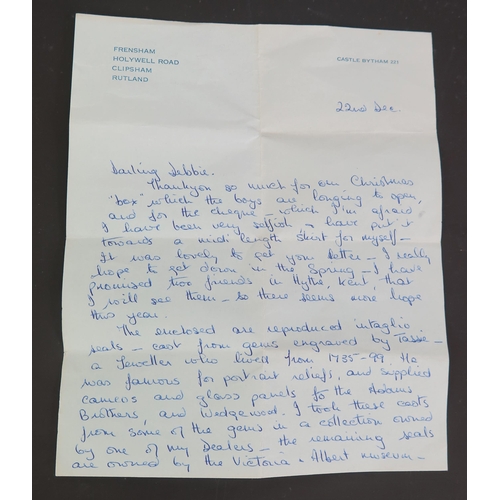 FRENSHAM
HOLYWELL ROAD
CLIPSHAM
RUTLAND
CASTLE BYTHAM
22nd Dec.
Darling Debbie.
Thankyou so much for our Christmas
"box" which the boys are longing to open,
and for the cheque – which I'm afraid
I have been very selfish & have put it
towards a midi length skirt for myself –
It was lovely to get your letter – I really
hope to get down in the Spring – I have
promised two friends in Hythe, Kent, that
I will see them – so there seems more hope
this year.
The enclosed are reproduced intaglio
seals – cast from gems engraved by Tassie –
a Jeweller who lived from 1735-99. He
was famous for portrait reliefs, and supplied
cameos and glass panels for the Adams
Brothers, and Wedgewood. I took these casts
from some of the gems in a collection owned
by one of my Dealers – the remaining seals
are owned by the Victoria & Albert museum –